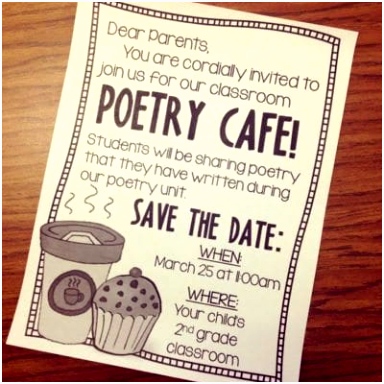 Dear parents,
You are cordially invited to
join us for our classroom
POETRY CAFE!
Students will be sharing poetry
that they have written during
our poetry unit.
SAVE THE DATE:
WHEN:
March 25 at 11:00am
WHERE:
Your child's
2nd grade
classroom